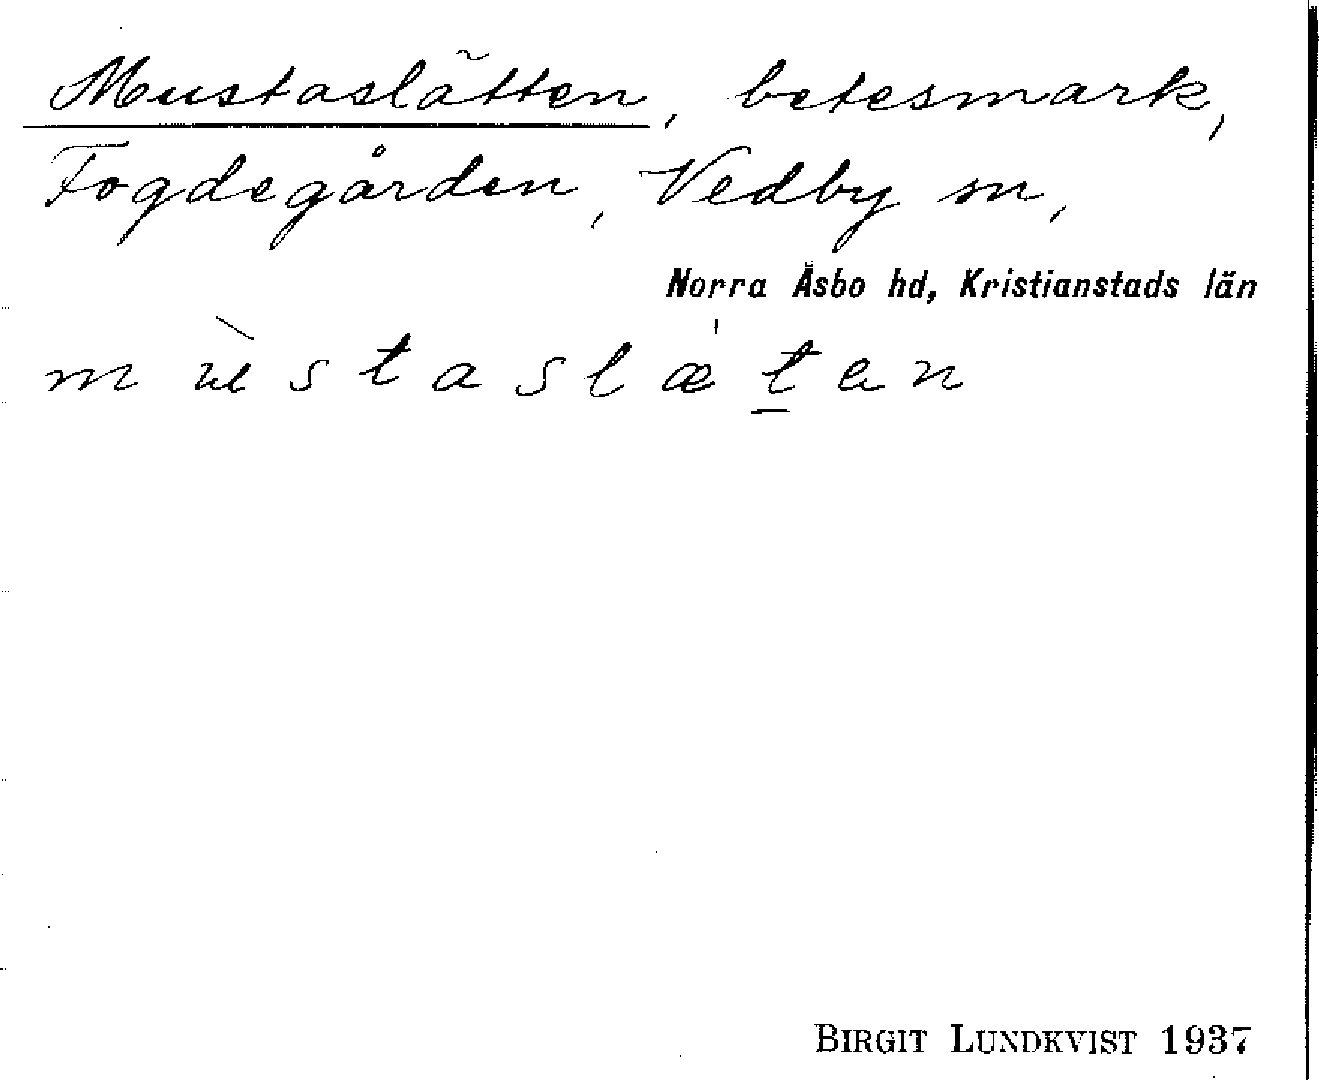 Mustaslätten, betesmark,
Fogdegården, Vedby sn,
Norra Åsbo hd, Kristianstads län
mùstaslæ̍t̲en
BIRGIT LUNDKVIST 1937